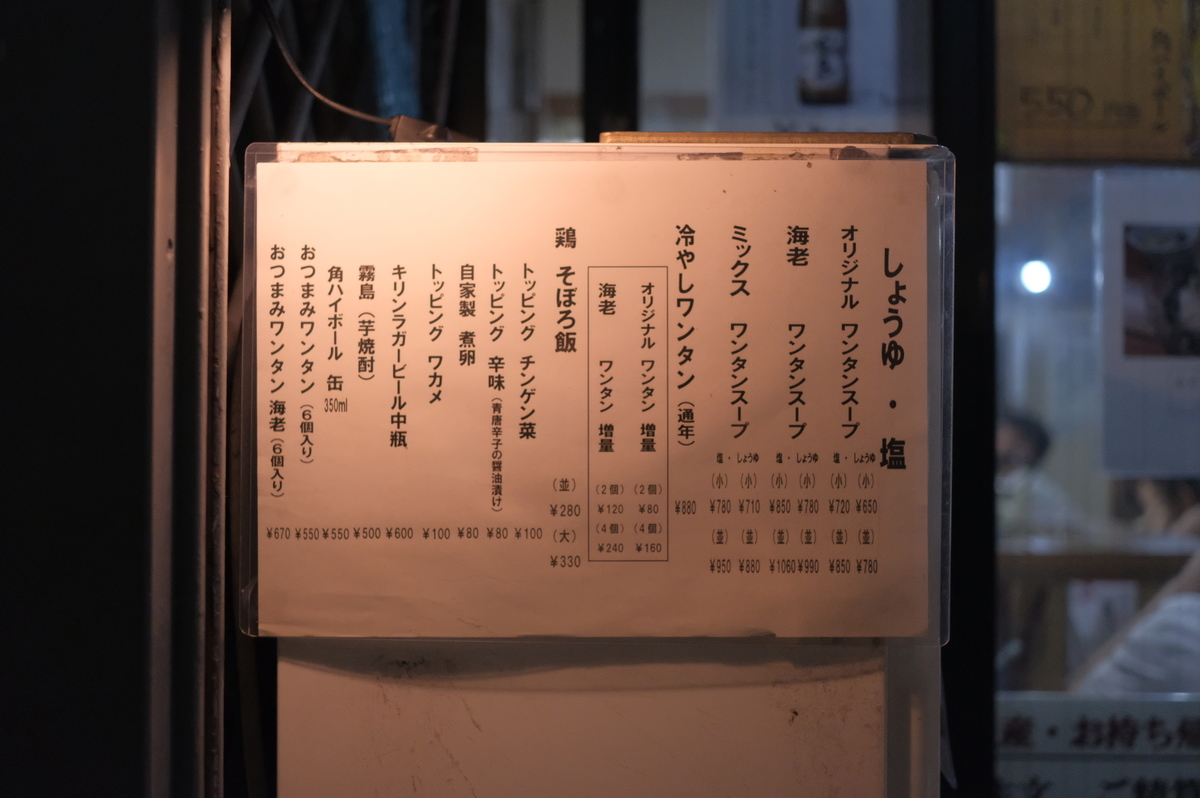 しょうゆ・塩
オリジナル ワンタンスープ 塩・しょうゆ (小) (小) ¥720 ¥650 (並) (並) ¥850 ¥780
海老 ワンタンスープ 塩・しょうゆ (小) (小) ¥850 ¥780 (並) (並) ¥1060 ¥990
ミックス ワンタンスープ 塩・しょうゆ (小) (小) ¥780 ¥710 (並) (並) ¥950 ¥880
冷やしワンタン (通年) ¥880
オリジナル ワンタン 増量 (2個) ¥80 (4個) ¥160
海老 ワンタン 増量 (2個) ¥120 (4個) ¥240
鶏 そぼろ飯 (並) ¥280 (大) ¥330
トッピング チンゲン菜 ¥100
トッピング 辛味(青唐辛子の醤油漬け) ¥80
自家製 煮卵 ¥80
トッピング ワカメ ¥100
キリンラガービール中瓶 ¥600
霧島(芋焼酎) ¥500
角ハイボール 缶 350ml ¥550
おつまみワンタン(6個入り) ¥550
おつまみワンタン 海老(6個入り) ¥670
550
産・お持ち